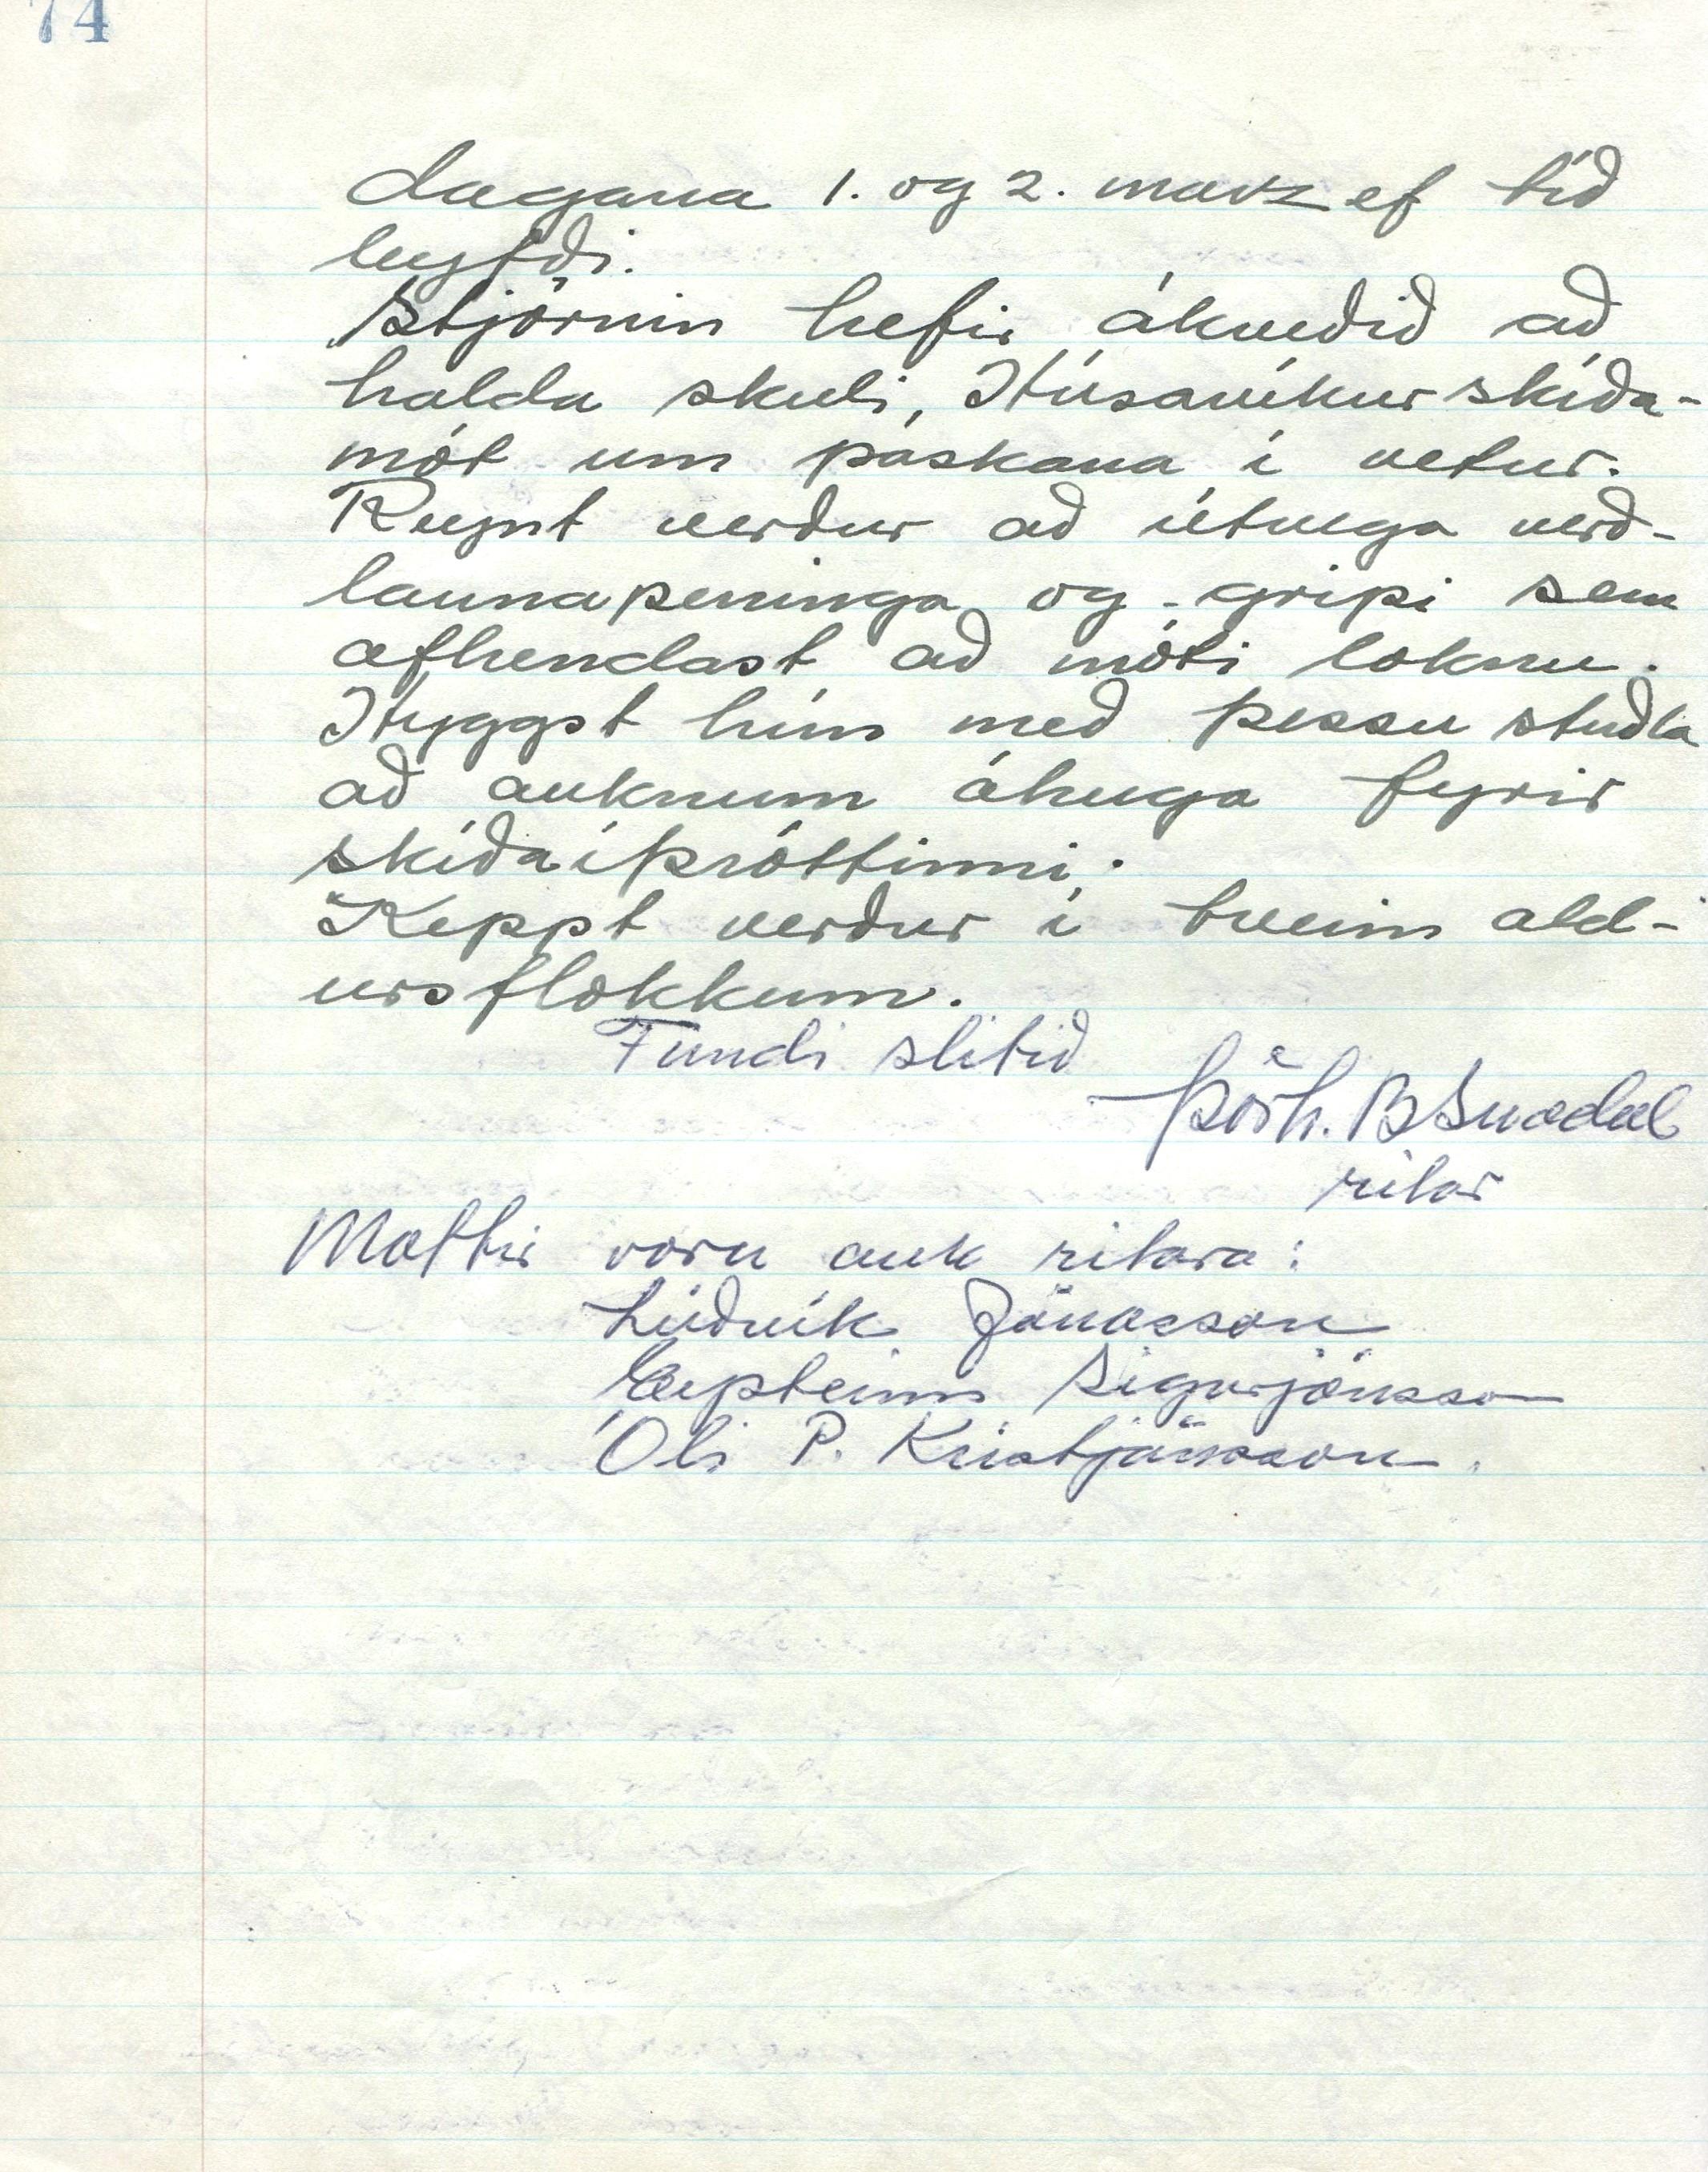 74
dagana 1. og 2. marz ef tíð
leyfði.
Stjórnin hefir ákveðið að
halda skuli, Húsavíkur skíða-
mót um páskana í vetur.
Reynt verður að útvega verð-
launapeninga og - gripi sem
afhendast að móti loknu.
Hyggst hún með þessu stuðla
að auknum áhuga fyrir
skíðaíþróttinni.
Keppt verður í tveim ald-
ursflokkum.
Fundi slitið
Þórh. B Snædal
ritar
Mættir voru auk ritara:
Lúðvík Jónasson
Eysteinn Sigurjónsson
Óli P. Kristjánsson.